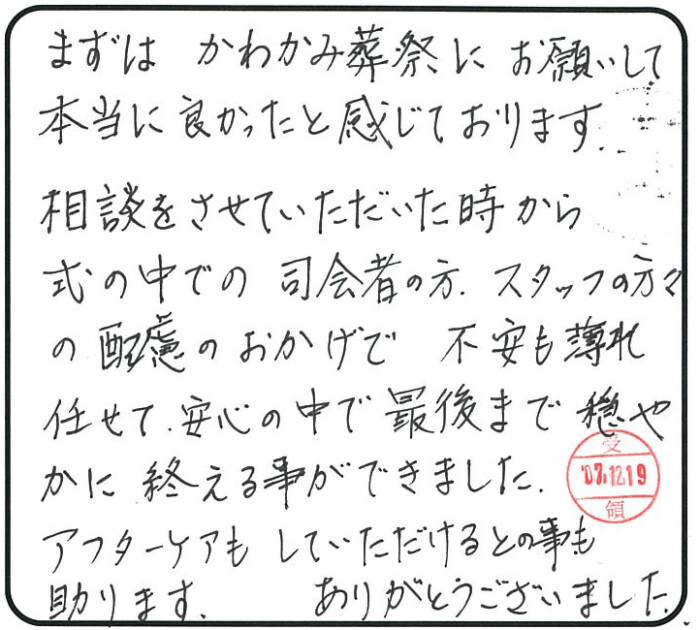 まずは かわかみ葬祭に お願いして
本当に良かったと感じております.
相談をさせていただいた時から
式の中での 司会者の方. スタッフの方々
の配慮のおかげで 不安も薄れ
任せて.安心の中で最後まで 穏や
かに 終える事ができました.
受
'07.12.19
領
アフターケアも していただけるとの事も
助ります. ありがとうございました.